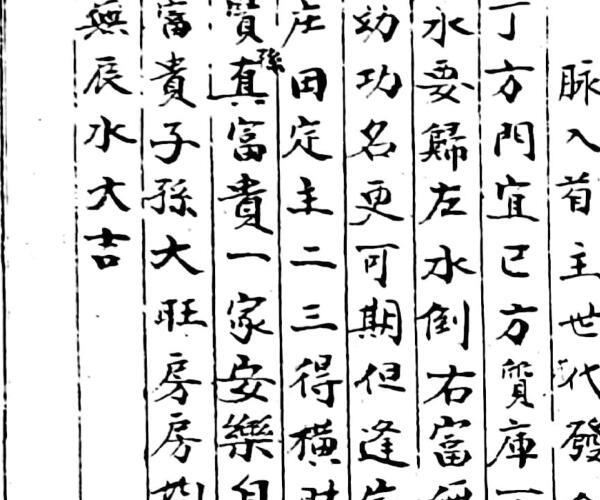 脉入首主世代發
丁方門宜巳方質庫
水要歸左水倒右富
効功名更可期但逢
庄田定主二三得橫財
賢孫真富貴一家安樂自
富貴子孫大旺房房
無辰水大吉